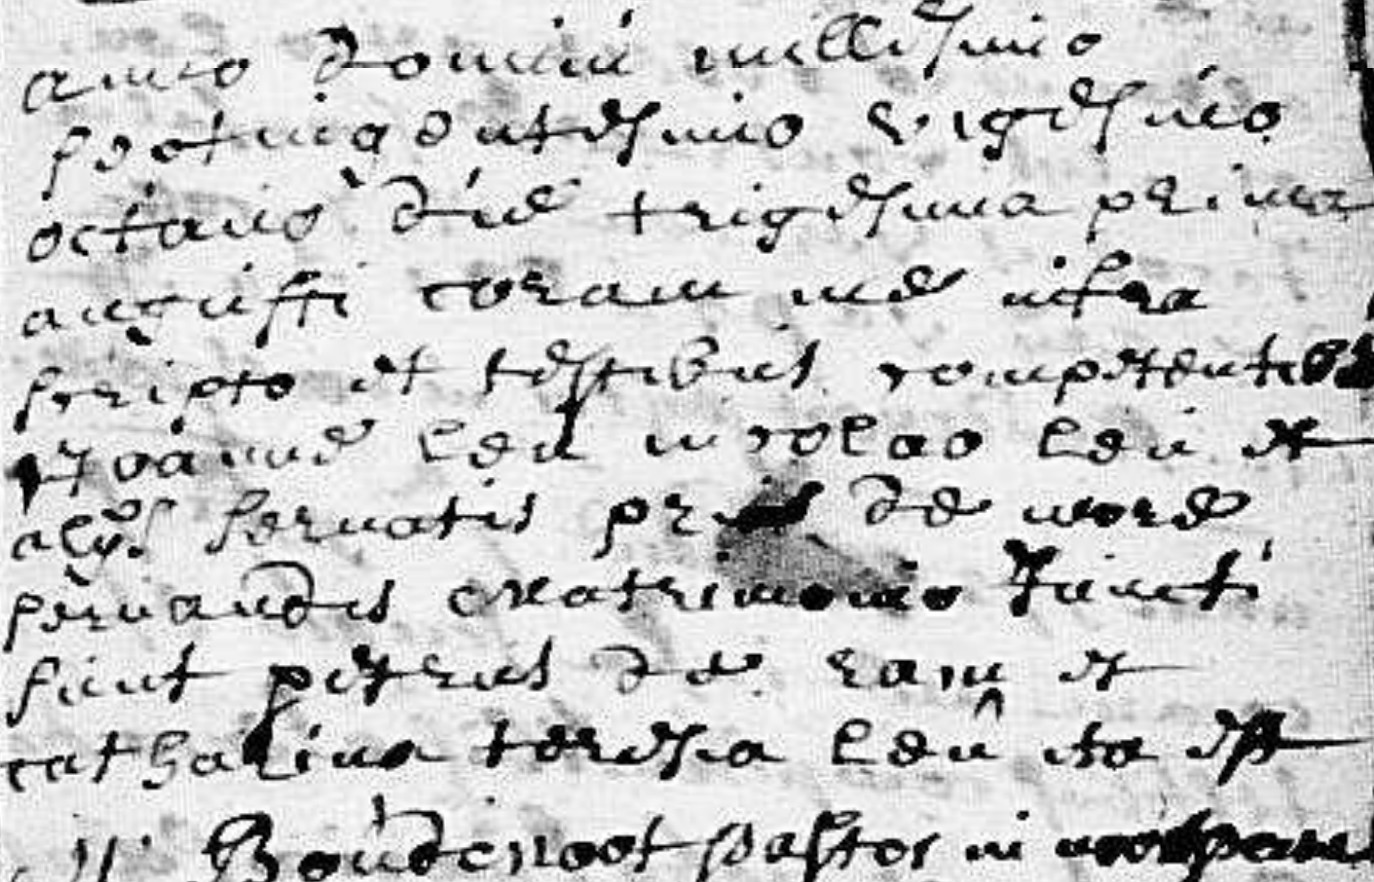 anno domini millesimo
septingentesimo vigesimo
octavo die trigesima prima
augusti coram me infra
scripto et testibus competentibus
joanne leu nicolao leu et
alijs servatis pri&#8203;is de more
servandis matrimonio Juncti
sunt petrus de ram et
catharina teresia leû ita est
Boudenoot pastor in